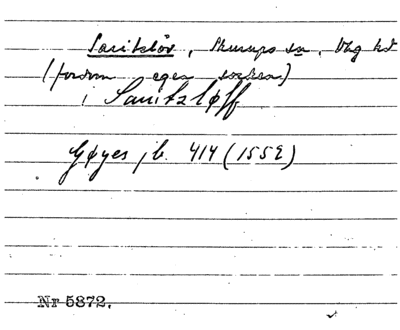 Saritslöv, Skurups sn, Vbg hd
(fordom egen socken)
i Saritzløff
Gøyes jb 414 (1552)
Nr 5872.